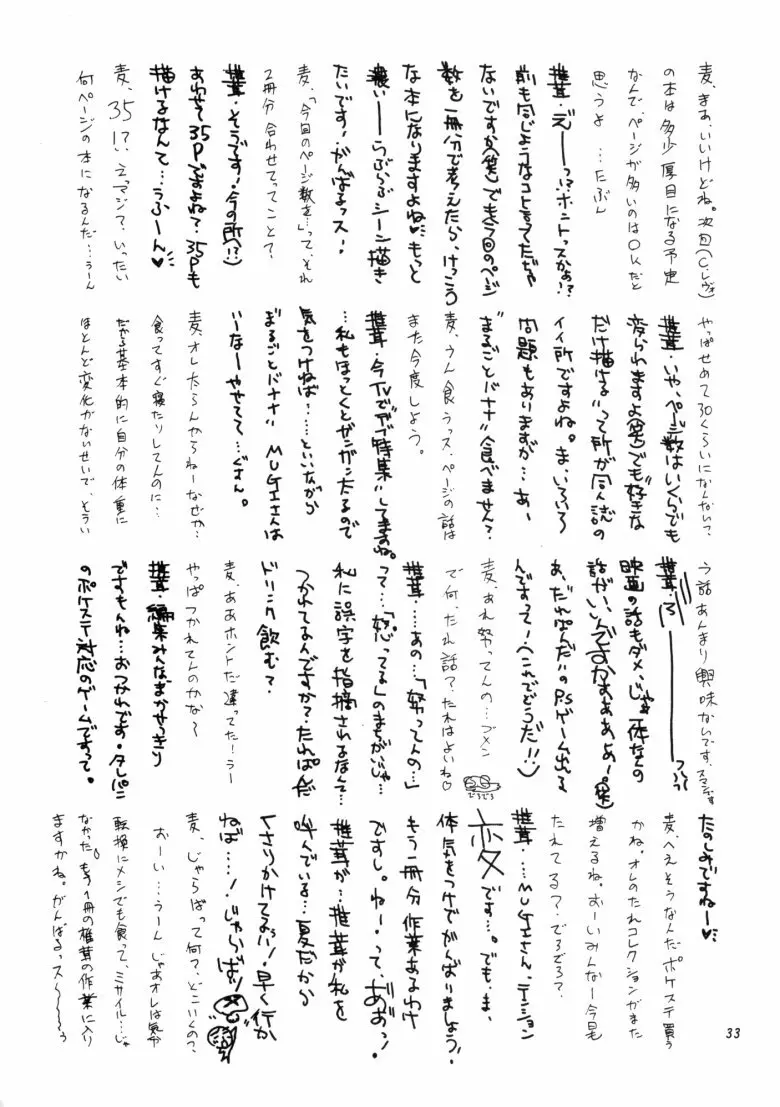 麦、まぁ、いいけどね。次回(C.レヴォ)
の本は多少厚目になる予定
なんで、ページが多いのはOKだと
思うよ…たぶん
椎茸・えーーっ!?ホントっスかぁ!?
前も同じようなコト言ってたじゃ
ないですか(笑)でも今回のページ
数を一冊分で考えたら、けっこう
な本になりますよね♥もっと
濃いーーらぶらぶシーン描き
たいです!がんばるっス!
麦、「今回のページ数を…」って、それ
2冊分合わせてってことで?
椎茸・そうです!今の所(!?)
あわせて35Pですよね?35Pも
描けるなんて…うふーん♥
麦、35!?えっマジで、いったい
何ページの本になるんだ……うーん
やっぱせめて30くらいになんない?
椎茸・いや、ページ数はいくらでも
変られますよ(笑)でも"好きな
だけ描ける"って所が同人誌の
イイ所ですよね。ま、いろいろ
問題もありますが…あ、
"まるごとバナナ"食べません?
麦、うん食うっス、ページの話は
また今度しよう。
椎茸・今TVで"デブ特集"してますね。
…私もほっとくとガンガン太るので
気をつけねば……といいながら
"まるごとバナナ" MUGIさんは
いいなーやせてて…ぐすん。
麦、オレ太らんからねーなぜか…
食ってすぐ寝たりしてんのに…
だから基本的に自分の体重に
ほとんど変化がないせいで、そうい
う話あんまり興味ないです、スマンです
椎茸・ろ゛ーーーーっっっ
映画の話もダメ、じゃあ一体なんの
話がいいんですかあああぁ!(笑)
あ、"たれぱんだ"のPSゲーム出る
んですって!(これでどうだ!!)
麦、あれ努ってんの…ゴメン
で何、たれ話?たれはよいね♡
でろでろ
椎茸・…あの…「努ってんの…」
って…「怒ってる」のまちがいじゃ…
私に誤字を指摘されるなんて…
つかれてるんですか?たれぱんだ
ドリンク飲む?
麦、ああホントだ違ってた!うー
やっぱつかれてんのかな〜
椎茸・編集みんなまかせっきり
ですもんね…おつかれです・タレパン
のポケステ対応のゲームですって。
たのしみですねー♥
麦、へえそうなんだポケステ買う
かね。オレのたれコレクションがまた
増えるね。おーいみんなー今日も
たれてる?でろでろ?
椎茸・…MUGIさん、テーション
変です…。でも、ま、
体気をつけてがんばりましょう!
もう一冊分作業あるわけ
ですし。ねー・って、ああっ!
椎茸が…椎茸が私を
呼んでいる…夏だから
くさりかけてるぅ!早く行か
ねば…!じゃらば!
麦、じゃらばって何?、どこいくの?
おーい…うーん じゃあオレは気分
転換にメシでも食って、ミサイル…じゃ
なかった。もう1冊の椎茸の作業に入り
ますかね。がんばるっス〜〜〜〜
33